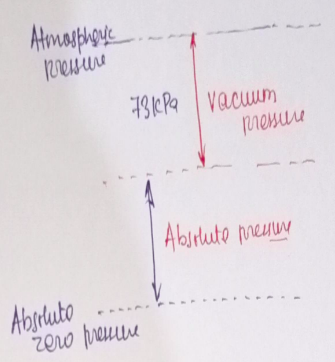 Atmospheric
pressure
73kPa
vacuum
pressure
Absolute pressure
Absolute
zero pressure